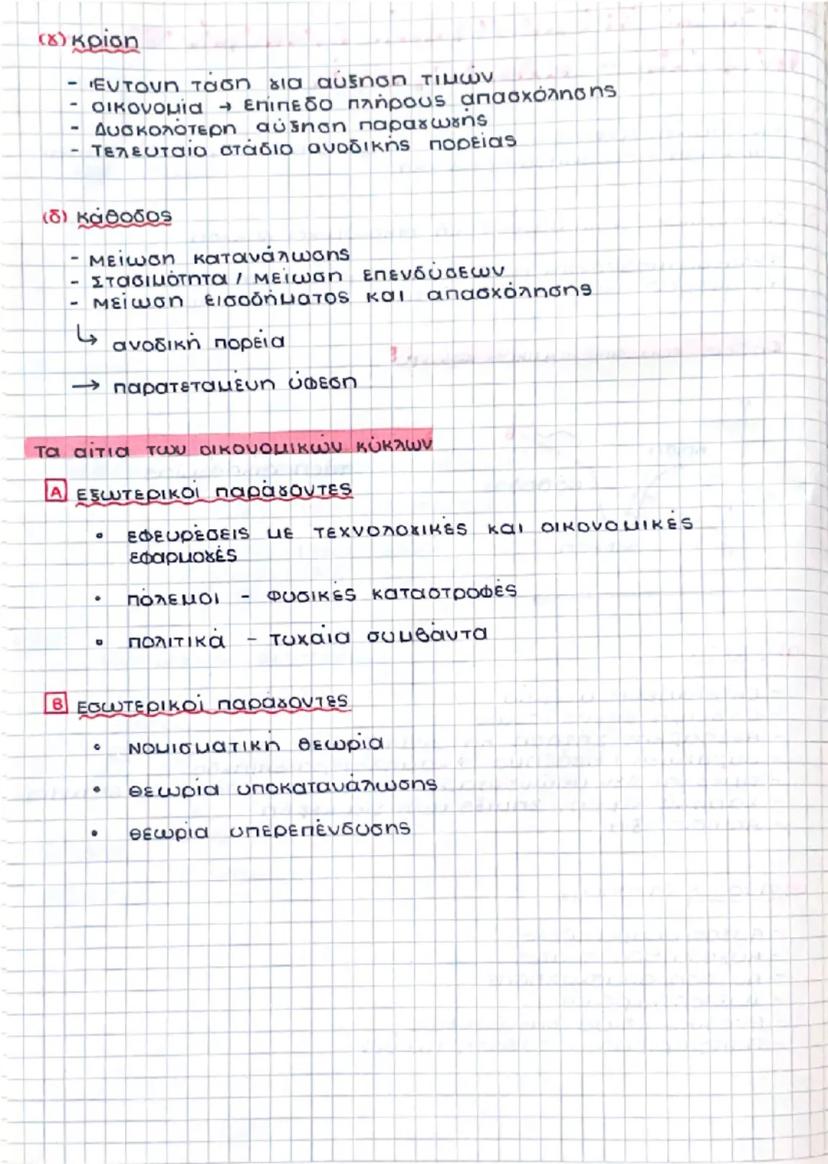 (γ) Κρίση
- Έντονη τάση για αύξηση τιμών
- Οικονομία → Επίπεδο πλήρους απασχόλησης
- Δυσκολότερη αύξηση παραγωγής
- Τελευταίο στάδιο ανοδικής πορείας
(δ) Κάθοδος
- Μείωση κατανάλωσης
- Στασιμότητα / Μείωση επενδύσεων
- Μείωση εισοδήματος και απασχόλησης
↳ ανοδική πορεία
→ παρατεταμένη ύφεση
Τα αίτια των οικονομικών κύκλων
Α Εξωτερικοί παράγοντες
• Εφευρέσεις με τεχνολογικές και οικονομικές
εφαρμογές
• Πόλεμοι - Φυσικές καταστροφές
• Πολιτικά - Τυχαία συμβάντα
Β Εσωτερικοί παράγοντες
• Νομισματική θεωρία
• Θεωρία υποκατανάλωσης
• Θεωρία υπερεπένδυσης